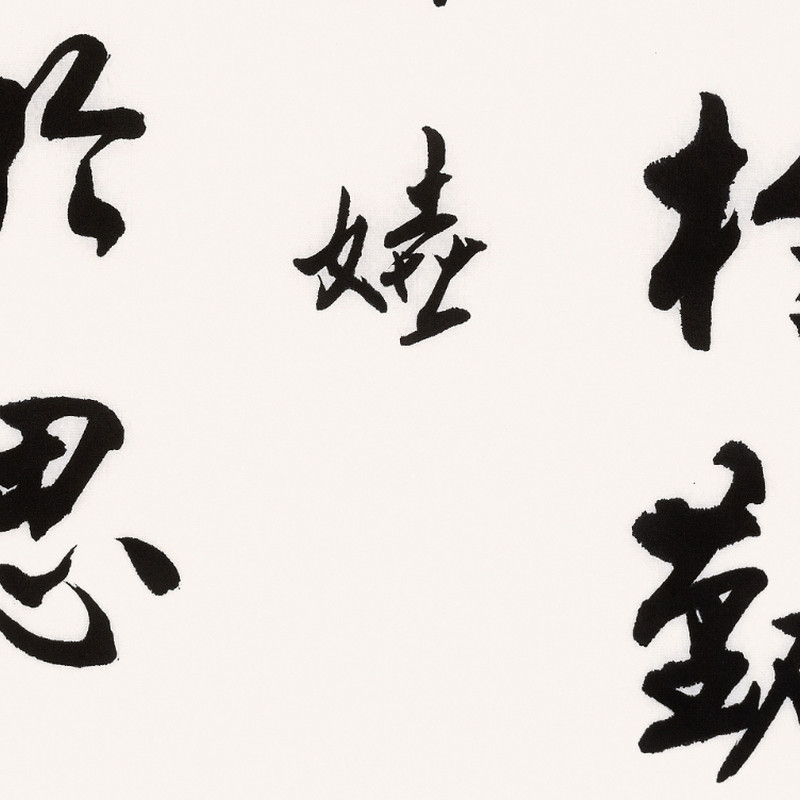 於勤
嬉
於思